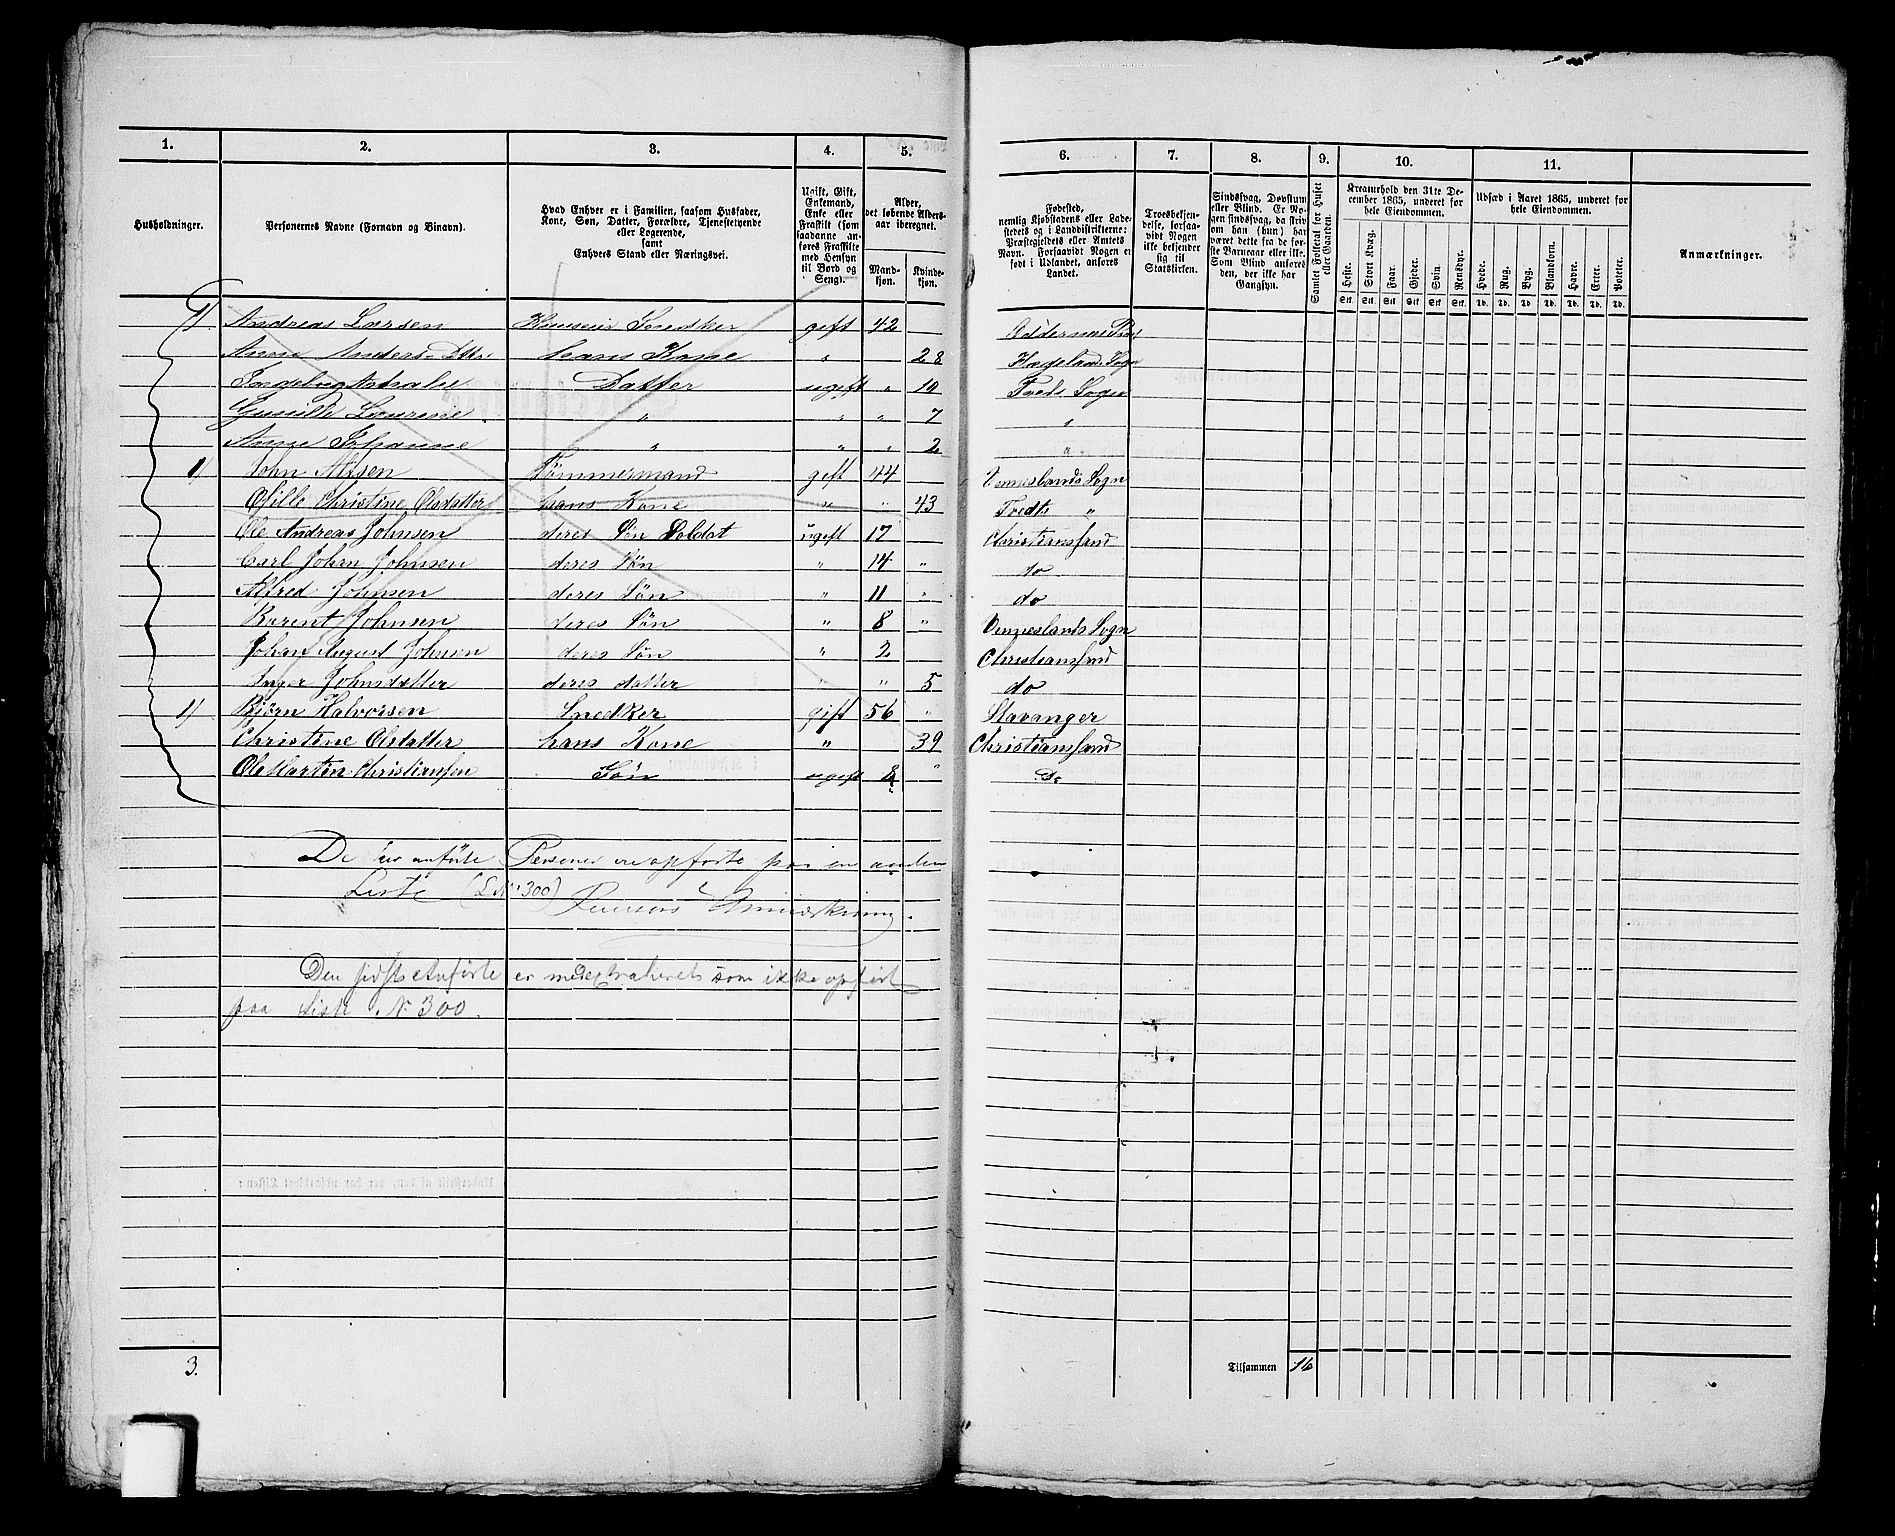 1. 2. 3. 4. 5. 6. 7. 8. 9. 10. 11.
Husholdninger.
Personernes Navne (Fornavn og Binavn).
Hvad Enhver er i Familien, saasom Husfader,
Kone, Søn, Datter, Forældre, Tjenestetyende
eller Logerende,
samt
Enhvers Stand eller Næringsvei.
Ugift, Gift,
Enkemand,
Enke eller
Fraskilt (som
saadanne an-
føres Fraskilte
med Hensyn
til Bord og
Seng).
Alder,
det løbende Alders-
aar iberegnet.
Mand-
kjøn.
Kvinde-
kjøn.
Fødested,
nemlig Kjøbstadens eller Lade-
stedets og i Landdistrikterne:
Præstegjeldets eller Amtets
Navn. Forsaavidt Nogen er
født i Udlandet, anføres
Landet.
Troesbekjen-
delse, forsaa-
vidt Nogen
ikke bekjender
sig til
Statskirken.
Sindssvag, Døvstum
eller Blind. Er No-
gen sindssvag, da skriv
om han (hun) har
været dette fra de før-
ste Barneaar eller ikke.
Som Blind anføres
den, der ikke har
Gangsyn.
Samlet Folketal for Huset
eller Gaarden.
Kreaturhold den 31te De-
cember 1865, underet for
hele Eiendommen.
Heste. Stort Kvæg. Faar. Gjeder. Svin. Rensdyr.
Stk. Stk. Stk. Stk. Stk. Stk.
Udsæd i Aaret 1865, underet for
hele Eiendommen.
Hvede. Rug. Byg. Blandkorn. Havre. Erter. Poteter.
Td. Td. Td. Td. Td. Td. Td.
Anmærkninger.
1/ Andreas Larsen Snedker gift 42
Anne Anders Dtter hans Kone " 28 Hægelands Sogn
Datter ugift " 10 Tveds Sogn
Gunilde Laurine " " " 7 "
Anne Johanne " " " 2 "
1/ John Alfsen Tømmermand gift 44 Venneslands Sogn
Christine Olsdatter hans Kone " " 43 Tveds "
Ole Andreas Johnsen deres Søn Soldat ugift 17 Christianssand
Carl Johan Johnsen deres Søn " 14 " do
Alfred Johnsen deres Søn " 11 " do
Berent Johnsen deres Søn " 8 " Venneslands Sogn
Johan August Johnsen deres Søn " 2 Christianssand
Inger Johnsdatter deres datter " " 5 do
1/ Bjørn Halvorsen Snedker gift 56 " Stavanger
Christine Olsdatter hans Kone " 39 Christianssand
Ole Martin Christiansen Søn ugift 8 " Do
De her anførte Personer ere opførte paa en anden
Liste (L No 300)
Den sidst Anførte er medextraheret som ikke opført
paa Liste No 300.
3.
Tilsammen 16